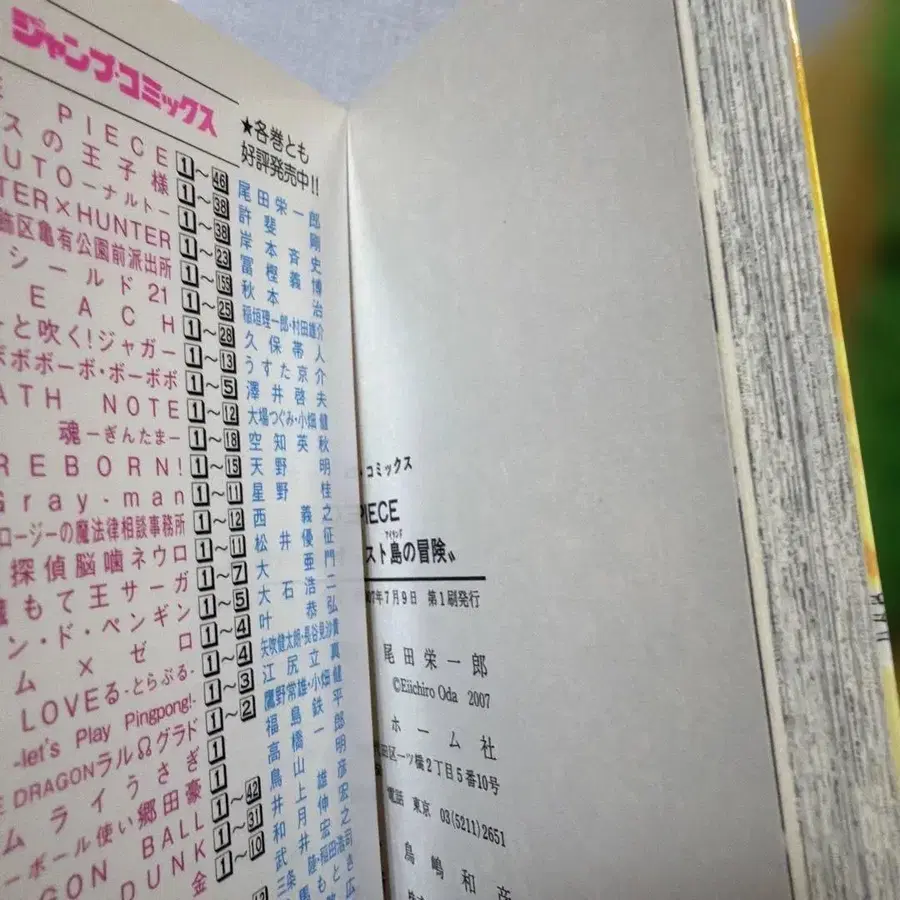 ジャンプ・コミックス
★各巻とも
好評発売中!!
PIECE 1～46 尾田栄一郎
スの王子様 1～38 許斐剛
UTO―ナルト― 1～38 岸本斉史
TER×HUNTER 1～23 冨樫義博
飾区亀有公園前派出所 1～155 秋本治
シールド21 1～25 稲垣理一郎・村田雄介
EACH 1～28 久保帯人
と吹く!ジャガー 1～13 うすた京介
ボボボーボ・ボーボボ 1～5 澤井啓夫
ATH NOTE 1～12 大場つぐみ・小畑健
魂―ぎんたま― 1～18 空知英秋
REBORN! 1～15 天野明
Gray-man 1～11 星野桂
ロージーの魔法律相談事務所 1～12 西義之
探偵脳噛ネウロ 1～11 松井優征
もて王サーガ 1～7 大亜門
ン・ド・ペンギン 1～5 大石浩二
ム×ゼロ 1～4 叶恭弘
LOVEる-とらぶる- 1～4 矢吹健太朗・長谷見沙貴
-let's Play Pingpong!- 1～3 江尻立真
DRAGONラルΩグラド 1～2 鷹野常雄・小畑健
ムライうさぎ 1 福島鉄平
ーボール使い郷田豪 1 高橋一郎
GON BALL 1～42 鳥山明
DUNK 1～31 井上雄彦
1～10 和月伸宏
武井宏之
・コミックス
PIECE
スト島の冒険〟
アイランド
7年7月9日 第1刷発行
尾田栄一郎
©Eiichiro Oda 2007
ホーム社
区一ツ橋2丁目5番10号
電話 東京 03(5211)2651
鳥嶋和彦